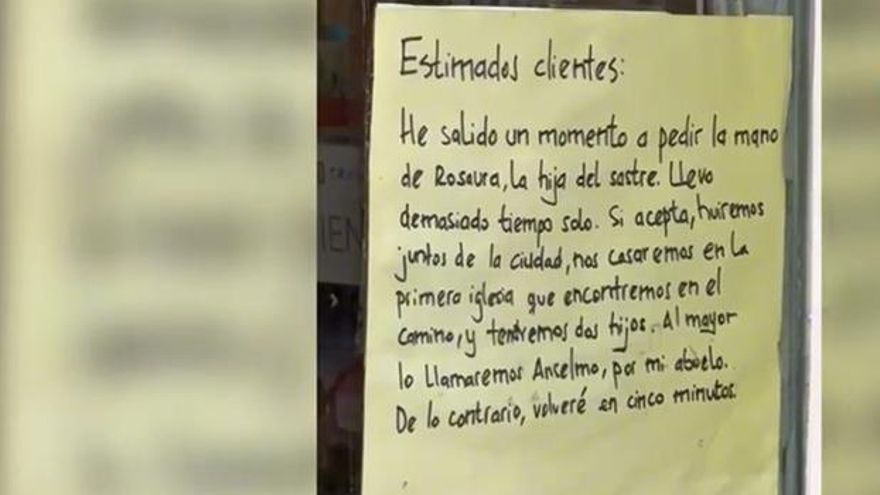 Estimados clientes:
He salido un momento a pedir la mano
de Rosaura, la hija del sastre. Llevo
demasiado tiempo solo. Si acepta, huiremos
juntos de la ciudad, nos casaremos en la
primera iglesia que encontremos en el
camino, y tendremos dos hijos. Al mayor
lo llamaremos Ancelmo, por mi abuelo.
De lo contrario, volveré en cinco minutos.